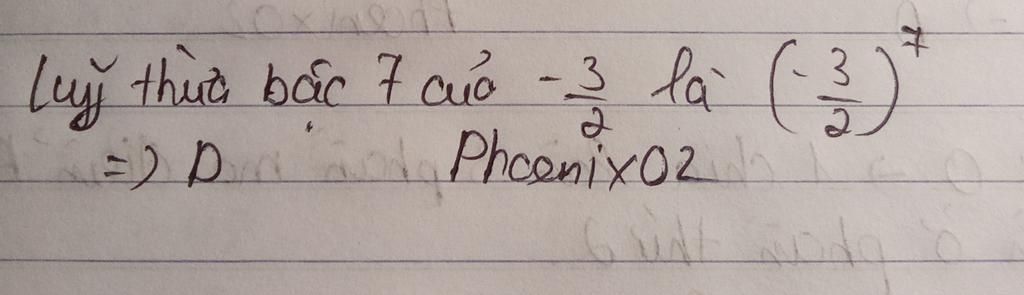 Luỹ thừa bậc 7 của -3/2 là (-3/2)^7
=) D PhoenixO2